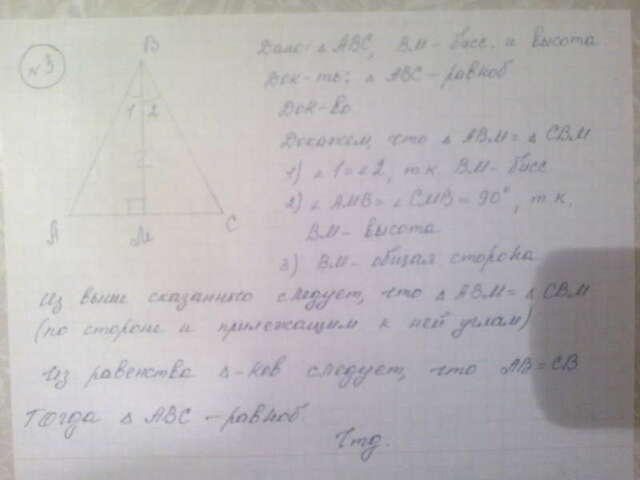 №3
B
1 2
A
M
C
Дано: △ ABC, BM - бисс. и высота
Док-ть: △ ABC - равноб
Док-во
Докажем, что △ ABM = △ CBM
1) ∠1=∠2, т.к. BM - бисс
2) ∠ AMB = ∠ CMB = 90°, т.к.
BM - высота
3) BM - общая сторона
Из выше сказанного следует, что △ ABM = △ CBM
(по стороне и прилежащим к ней углам)
Из равенства △-ков следует, что AB = CB
Тогда △ ABC - равноб.
Чтд.